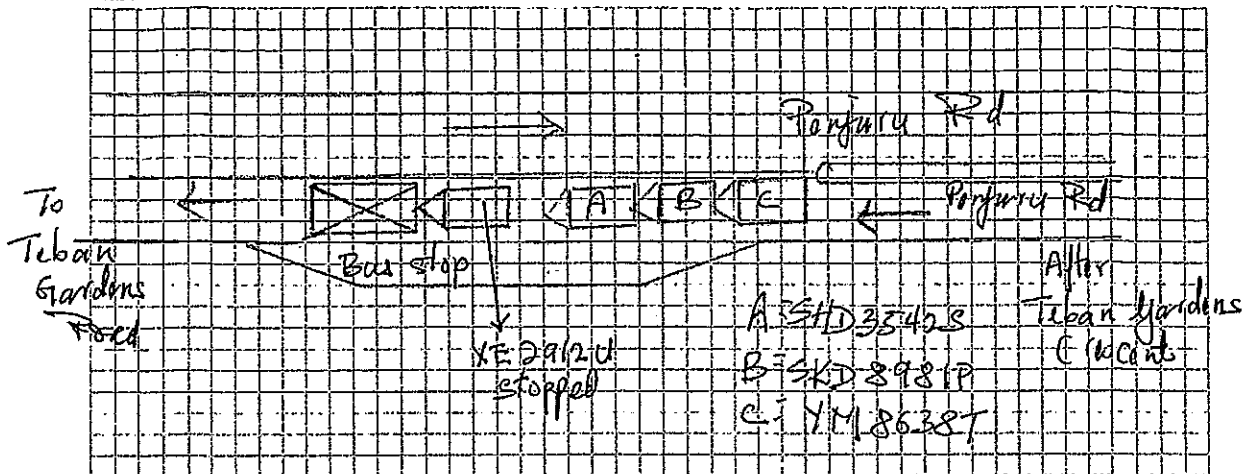 Penjuru Rd
To
Teban
Gardens
Road
A
B
C
Penjuru Rd
Bus stop
After
Teban Gardens
Crescent
XE2912U
stopped
A=SHD3542S
B=SKD8981P
C=YM8638T